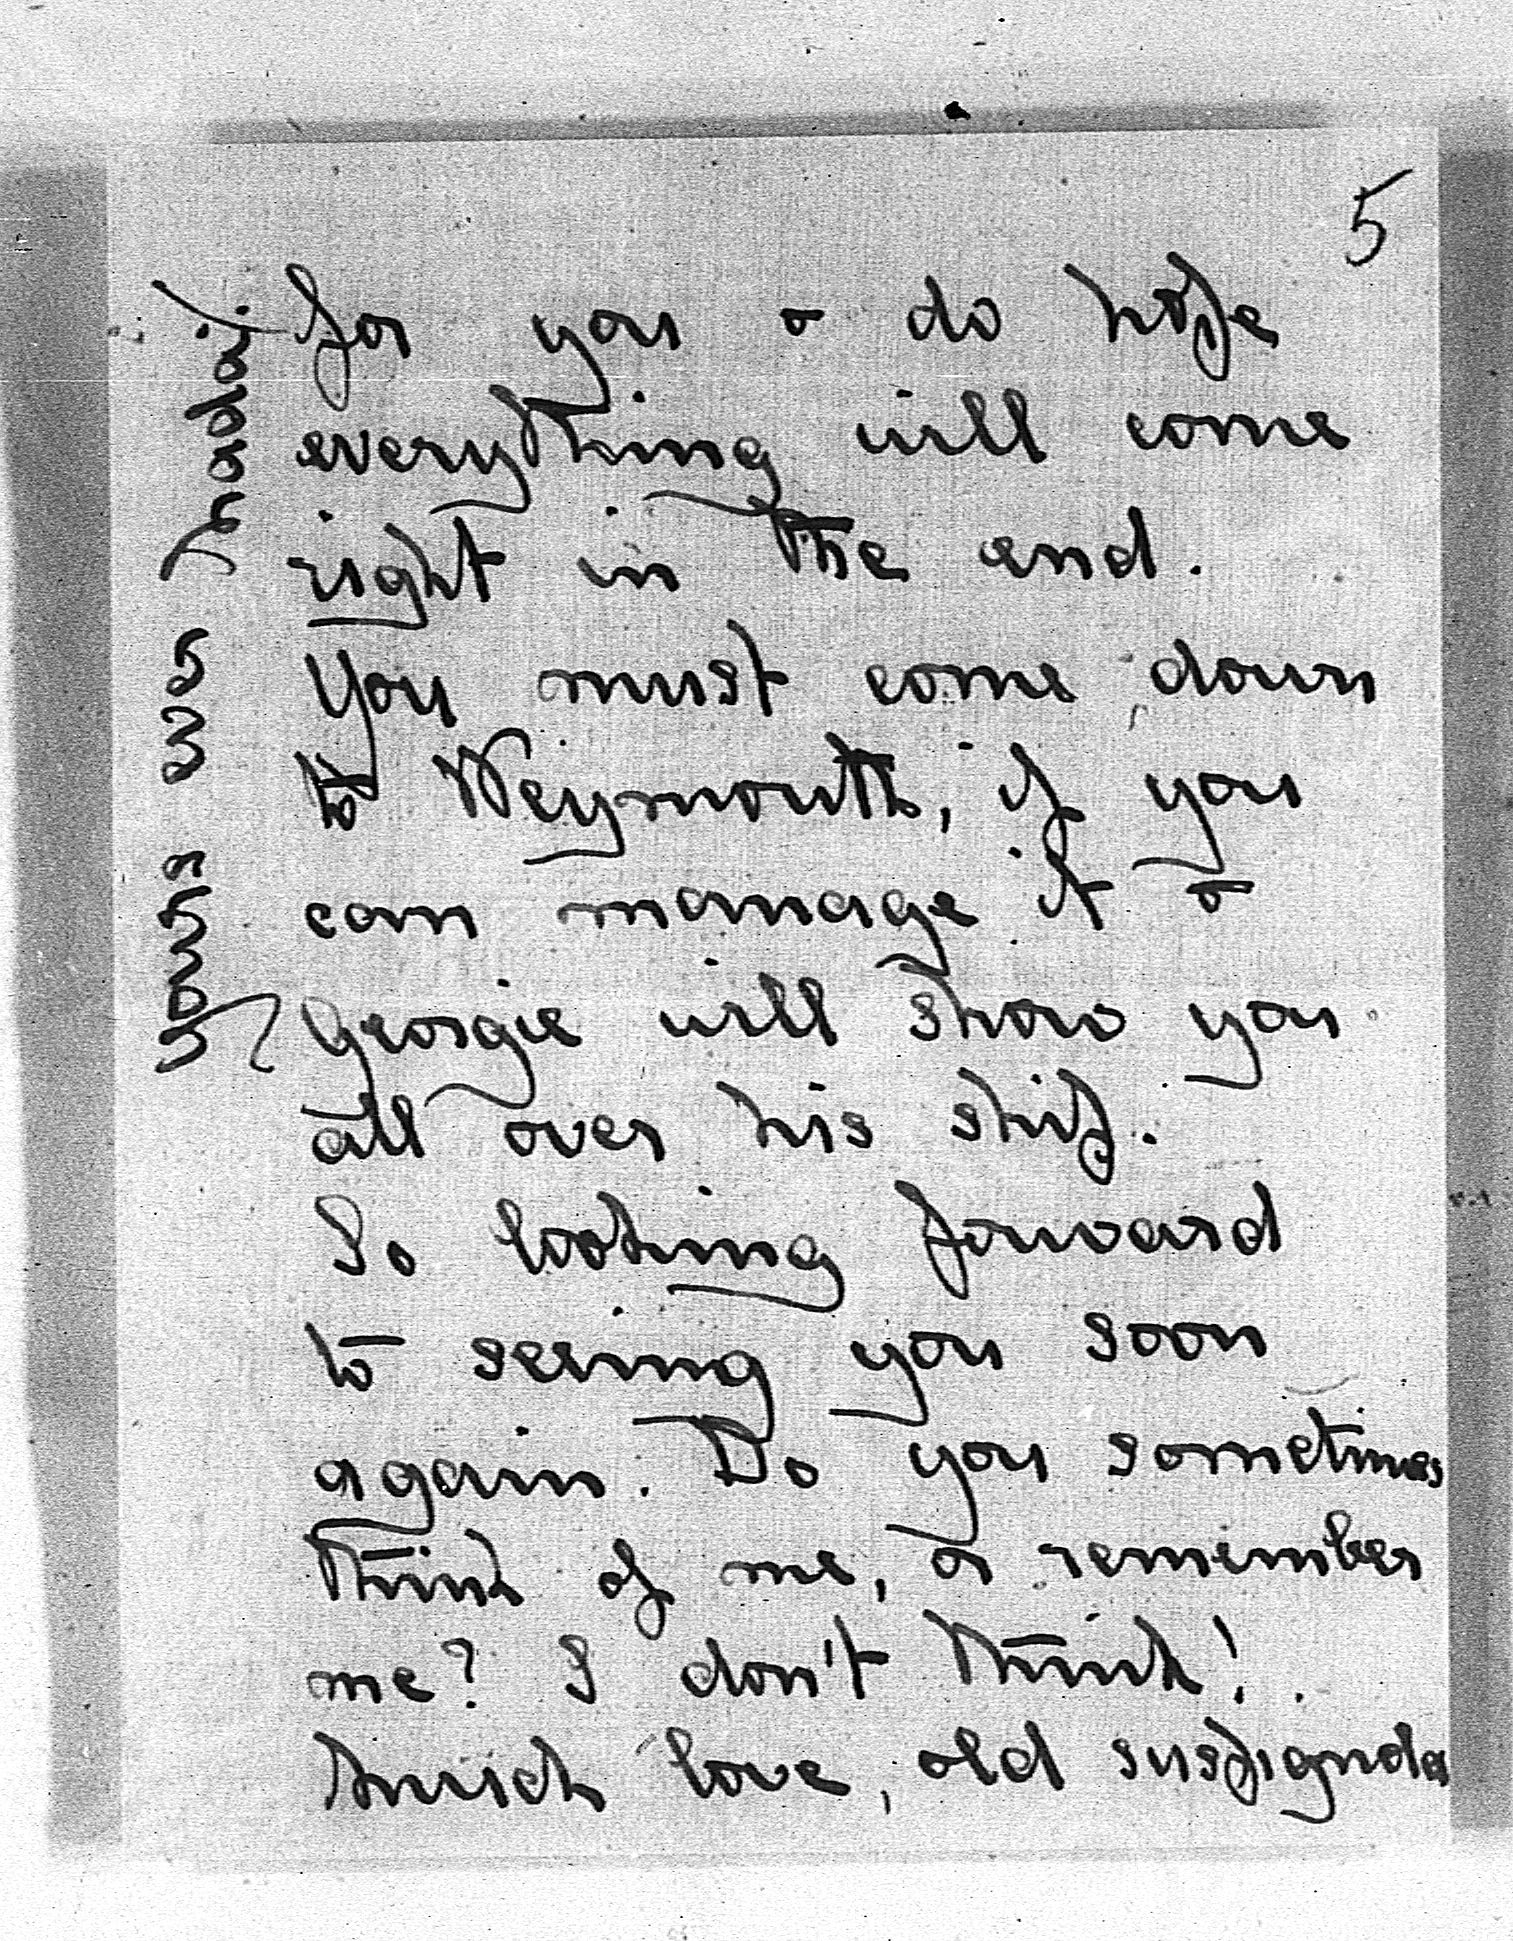 5
for you & do hope
everything will come
right in the end.
You must come down
to Weymouth, if you
can manage it &
Georgie will show you
all over his ship.
So looking forward
to seeing you soon
again. Do you sometimes
think of me, or remember
me? I don't think!
Much love, old
yours ever Nadaj.